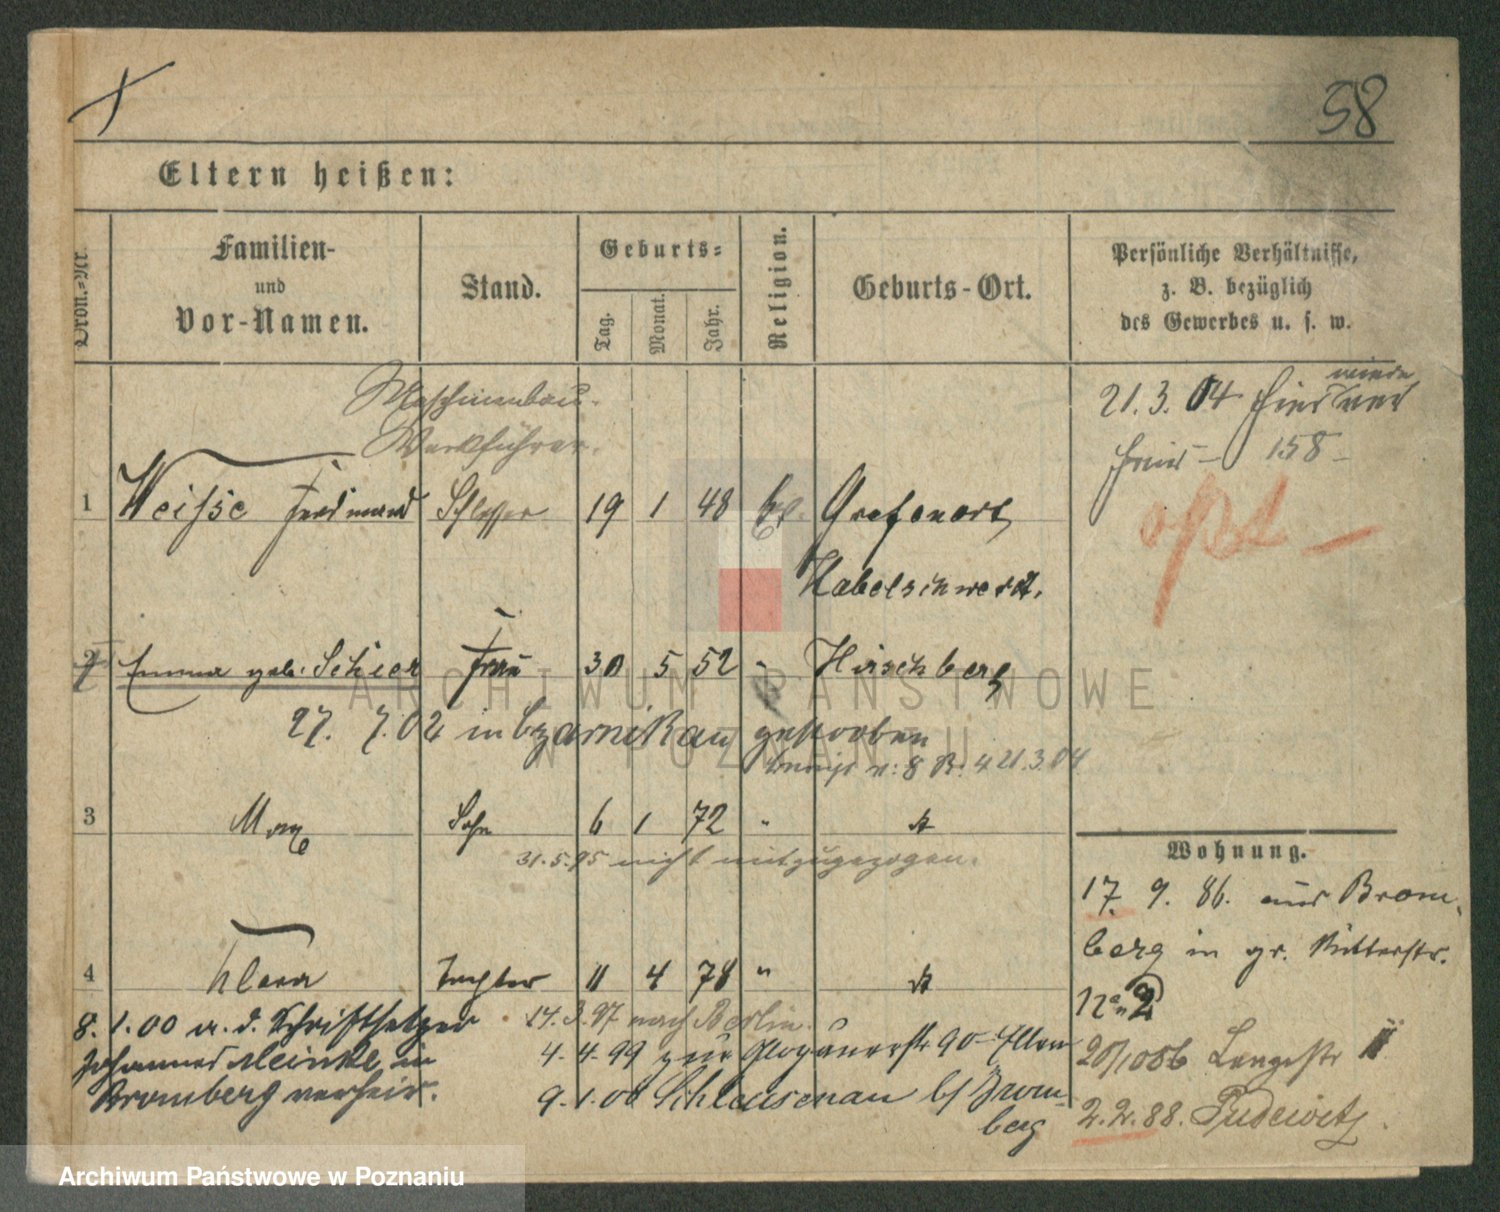 58
Eltern heißen:
Ordn.-Nr.
Familien-
und
Vor-Namen.
Stand.
Geburts-
Tag.
Monat.
Jahr.
Religion.
Geburts-Ort.
Persönliche Verhältnisse,
z. B. bezüglich
des Gewerbes u. s. w.
Maschinenbau-
Werkführer.
21.3.04
158
1 Weisse Ferdinand Schlosser 19 1 48 Grafenort
Habelschwerdt.
2 Emma geb. Schier Frau 30 5 52 " Hirschberg
27. 7. 02 in Czarnikau gestorben
21.3.04
3 Max Sohn 6 1 72 "
31.5.95 nicht mitzugezogen.
Wohnung.
17. 9. 86. aus Brom-
berg in gr. Ritterstr.
2
4 Clara Tochter 11 4 78 "
8. 1.00 a. d. Schriftsetzer
Johannes Meinke in
Bromberg verheir.
14.3.97 nach Berlin.
4.4.99 zur Glogauerstr 90 Eltern
9.1.00 Schleusenau b/ Brom-
berg
20/10 86 Langestr
2.2.88. Pudewitz.
ARCHIWUM PAŃSTWOWE
W POZNANIU
Archiwum Państwowe w Poznaniu